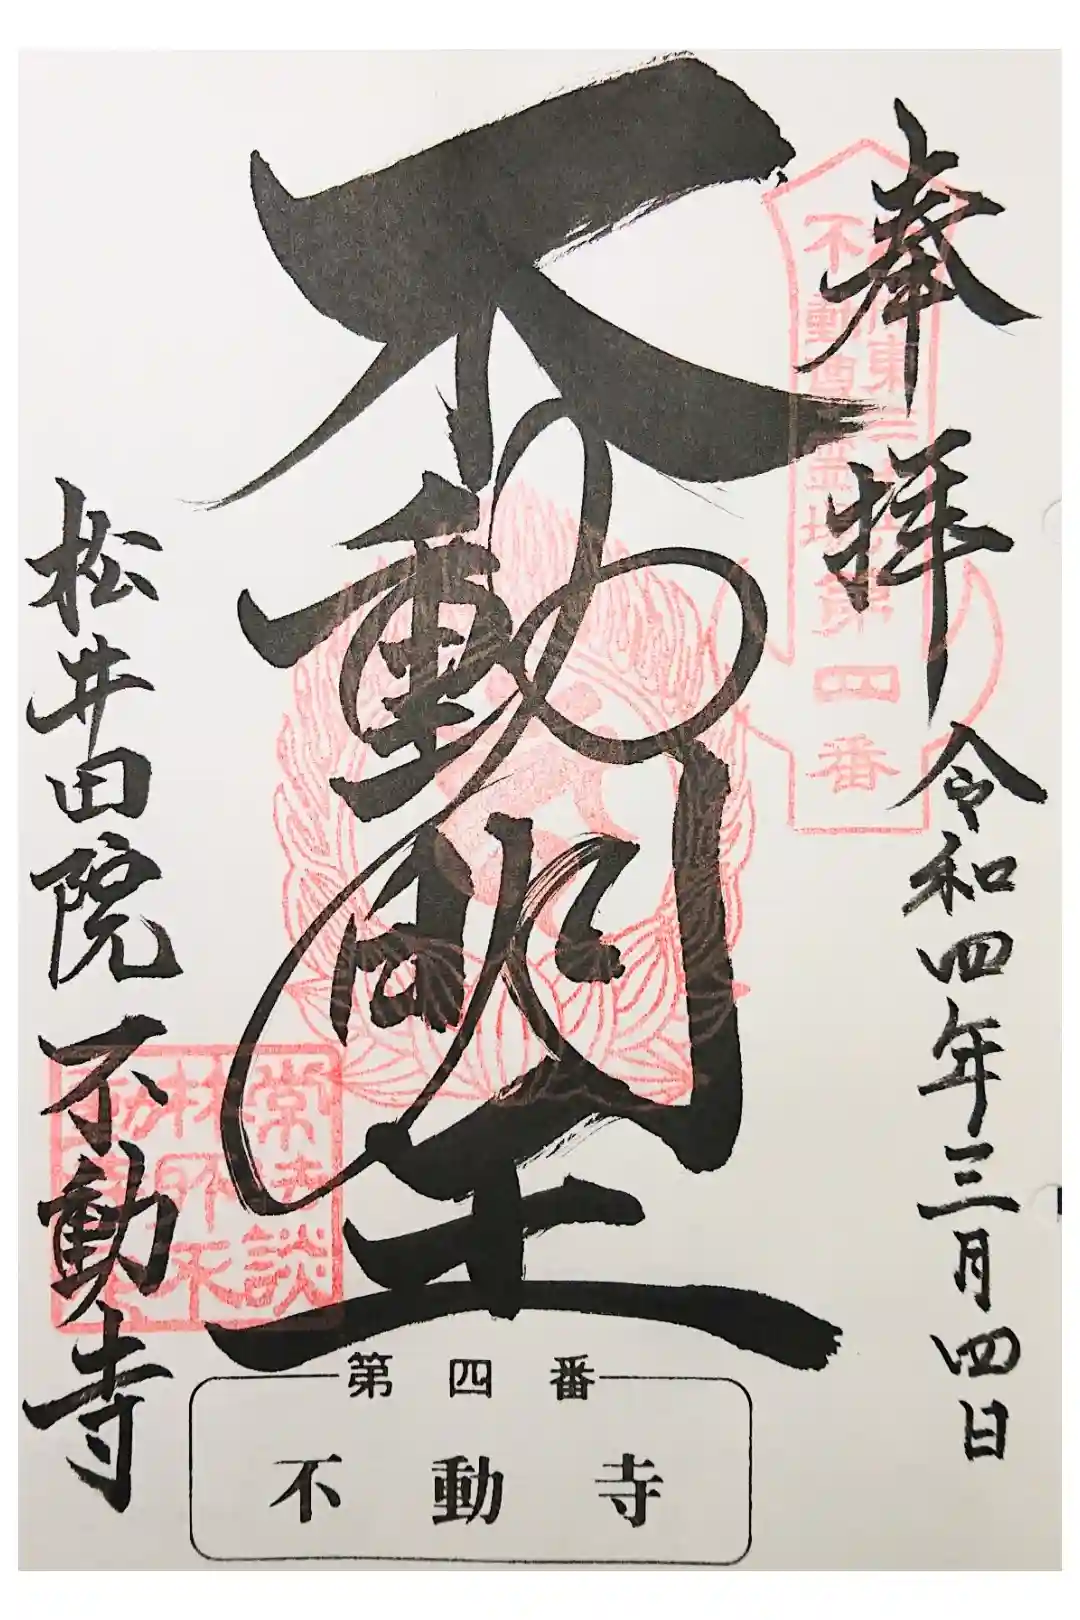 奉拝
令和四年三月四日
不動尊霊場
第四番
不動明王
松井田院不動寺
第四番
不動寺